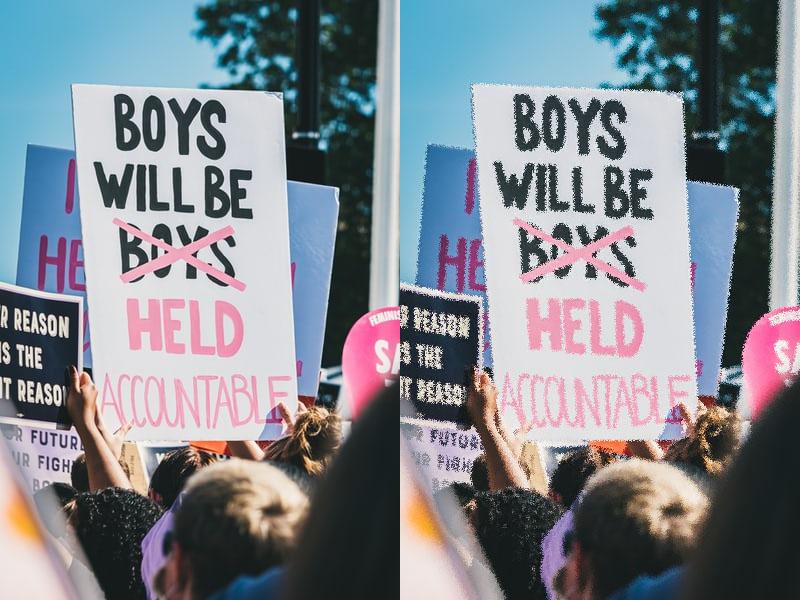 BOYS
WILL BE
BOYS
HELD
ACCOUNTABLE
R REASON
IS THE
T REASON
R FUTUR
UR FIGH
FEMINIS
SA
HE
BOYS
WILL BE
BOYS
HELD
ACCOUNTABLE
REASON
IS THE
T REASO
FUTUR
UR FIGH
SA
HE